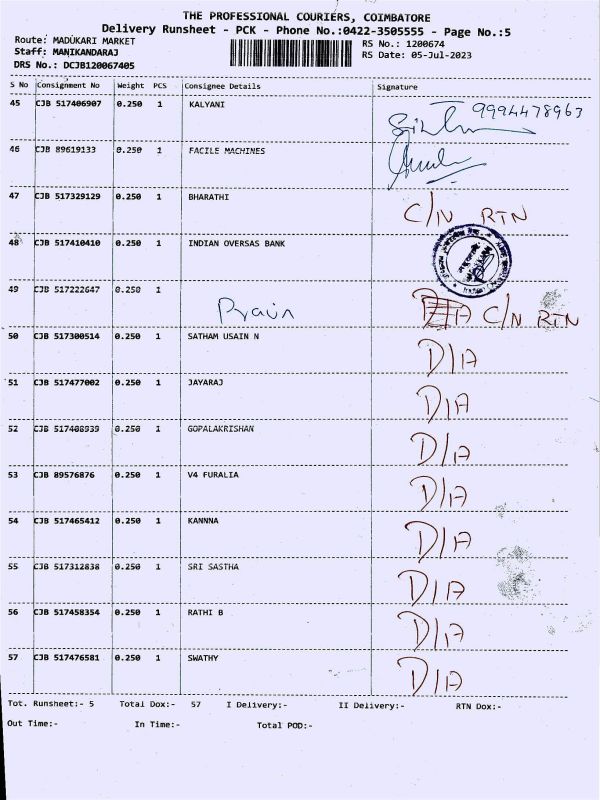 THE PROFESSIONAL COURIERS, COIMBATORE
Delivery Runsheet - PCK - Phone No.:0422-3505555 - Page No.:5
Route: MADUKARI MARKET RS No.: 1200674
Staff: MANIKANDARAJ RS Date: 05-Jul-2023
DRS No.: DCJB120067405
S No Consignment No Weight PCS Consignee Details Signature
45 CJB 517406907 0.250 1 KALYANI 9994478963
46 CJB 89619133 0.250 1 FACILE MACHINES
47 CJB 517329129 0.250 1 BHARATHI C/N RTN
48 CJB 517410410 0.250 1 INDIAN OVERSAS BANK
49 CJB 517222647 0.250 1 Pravin C/N RTN
50 CJB 517300514 0.250 1 SATHAM USAIN N D/A
51 CJB 517477002 0.250 1 JAYARAJ D/A
52 CJB 517408939 0.250 1 GOPALAKRISHAN D/A
53 CJB 89576876 0.250 1 V4 FURALIA D/A
54 CJB 517465412 0.250 1 KANNNA D/A
55 CJB 517312838 0.250 1 SRI SASTHA D/A
56 CJB 517458354 0.250 1 RATHI B D/A
57 CJB 517476581 0.250 1 SWATHY D/A
Tot. Runsheet:- 5 Total Dox:- 57 I Delivery:- II Delivery:- RTN Dox:-
Out Time:- In Time:- Total POD:-